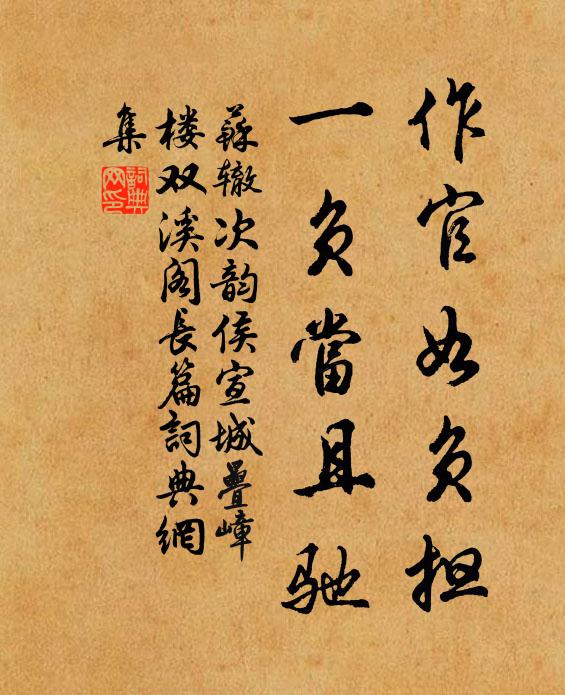 作官如负担
一负當且驰
蘇辙次韵侯宣城疊嶂
楼双溪阁長篇詞典網
集
詞典
网印